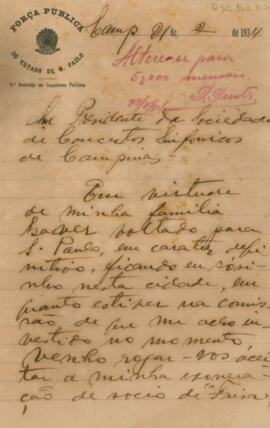 FORÇA PUBLICA
DO ESTADO DE S. PAULO
Camp 21 de 2 de 1934
Altere-se para
5,000 mensais.
Snr Presidente da Sociedade
de Concertos Sinfonicos
de Campinas
Em virtude
de minha familia
haver voltado para
S. Paulo, em carater defi-
nitivo, ficando eu sósi-
nho nesta cidade, em
quanto estiver na comis-
são de que me acho in-
vestido no momento,
venho rogar-vos acei-
tar a minha exonera-
ção de socio de "Frisa",